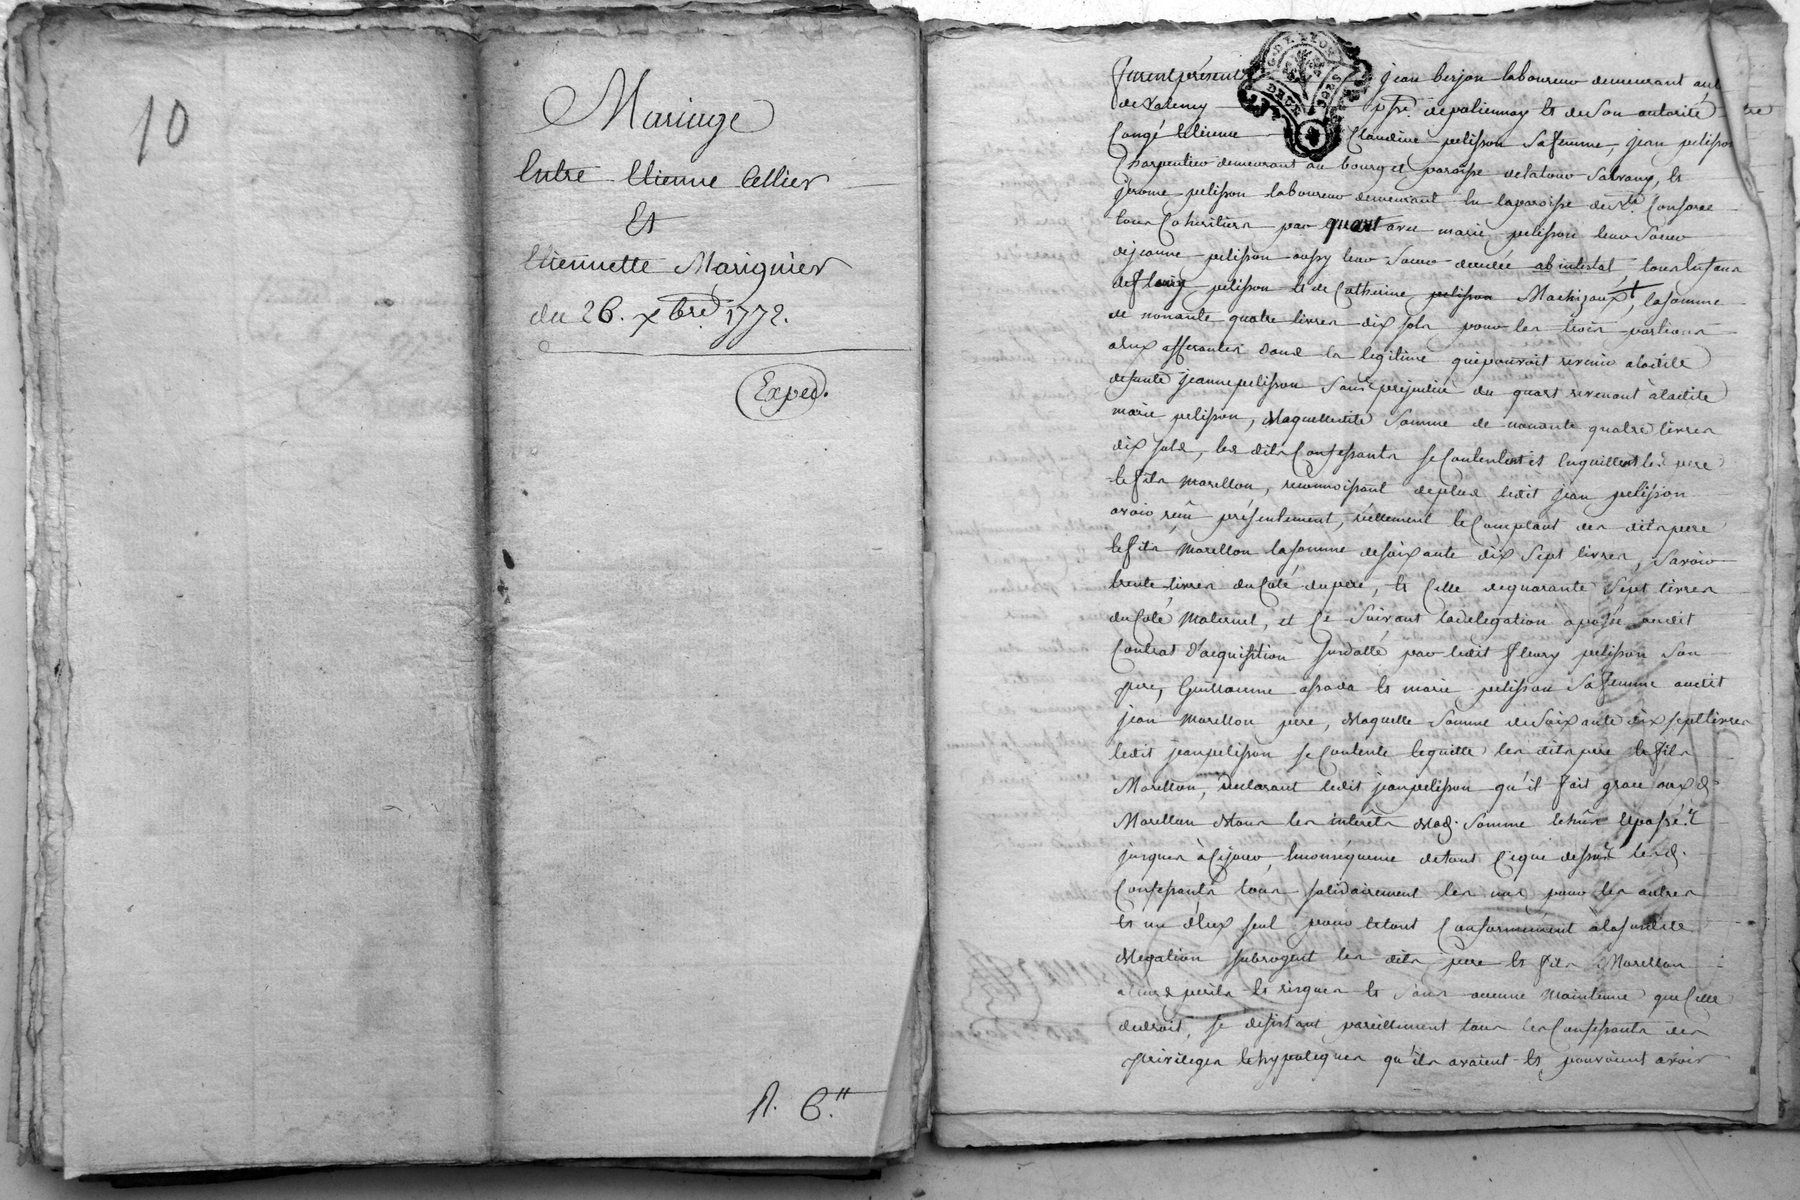 10
Mariage
Entre Etienne Cellier
Et
Etiennette Marignier
du 26. xbre 1772.
Exped.
Furent présent jean berjon laboureur demeurant au
de Valeny psse de valiennay et de son autorité
Congé Etienne Claudine pelisson sa femme, jean pelisson
Charpentier demeurant au bourg et paroisse de latour Salvany, et
jerome pelisson laboureur demeurant en la paroisse de Ste. Consorce
tous Cohéritiers par quart avec marie pelisson leur Soeur
de jeanne pelisson aussy leur Soeur decedée ab intestat, tous Enfans
de fleury pelisson et de Catherine pelisson Machizaux, la somme
de nonante quatre livres dix sols pour les trois portions
a Eux afferantes dans la legitime qui pouvoit revenir a ladite
defunte jeanne pelisson Sans prejudice du quart revenant à ladite
marie pelisson, de laquelle dite Somme de nonante quatre livres
dix sols, les dits Confessants se Contentent et Enquittent les pere
et fils Morellon, reconnoissant de plus ledit jean pelisson
avoir reçu présentement, réellement et Comptant des dits pere
et fils Morellon la somme de soixante dix Sept livres, Savoir
trente livres du Coté du pere, et Celle de quarante Sept livres
du Coté Maternel, et Ce Suivant la delegation aposée audit
Contrat d'acquisition Surdatté par ledit fleury pelisson Son
pere, Guillaume assada et marie pelisson Sa femme audit
jean Morellon pere, de laquelle Somme de Soixante dix sept livres
ledit jean pelisson se Contente et quitte les dits pere et fils
Morellon, declarant ledit jean pelisson qu'il fait grace aux d.
Morellon de tous les interêts de lad. Somme
jusques à Cejour, Enconséquence de tout Ceque dessus lesd.
Confessants tous solidairement les uns pour les autres
et un d'Eux seul pour le tout Conformément à la susdite
delegation subrogent les dits pere et fils Morellon
a leurs perils et risques et Sans aucune Maintenue que Celle
de droit, se desistant pareillement tous les Confessants des
privileges et hypoteques qu'ils avaient et pouvoient avoir